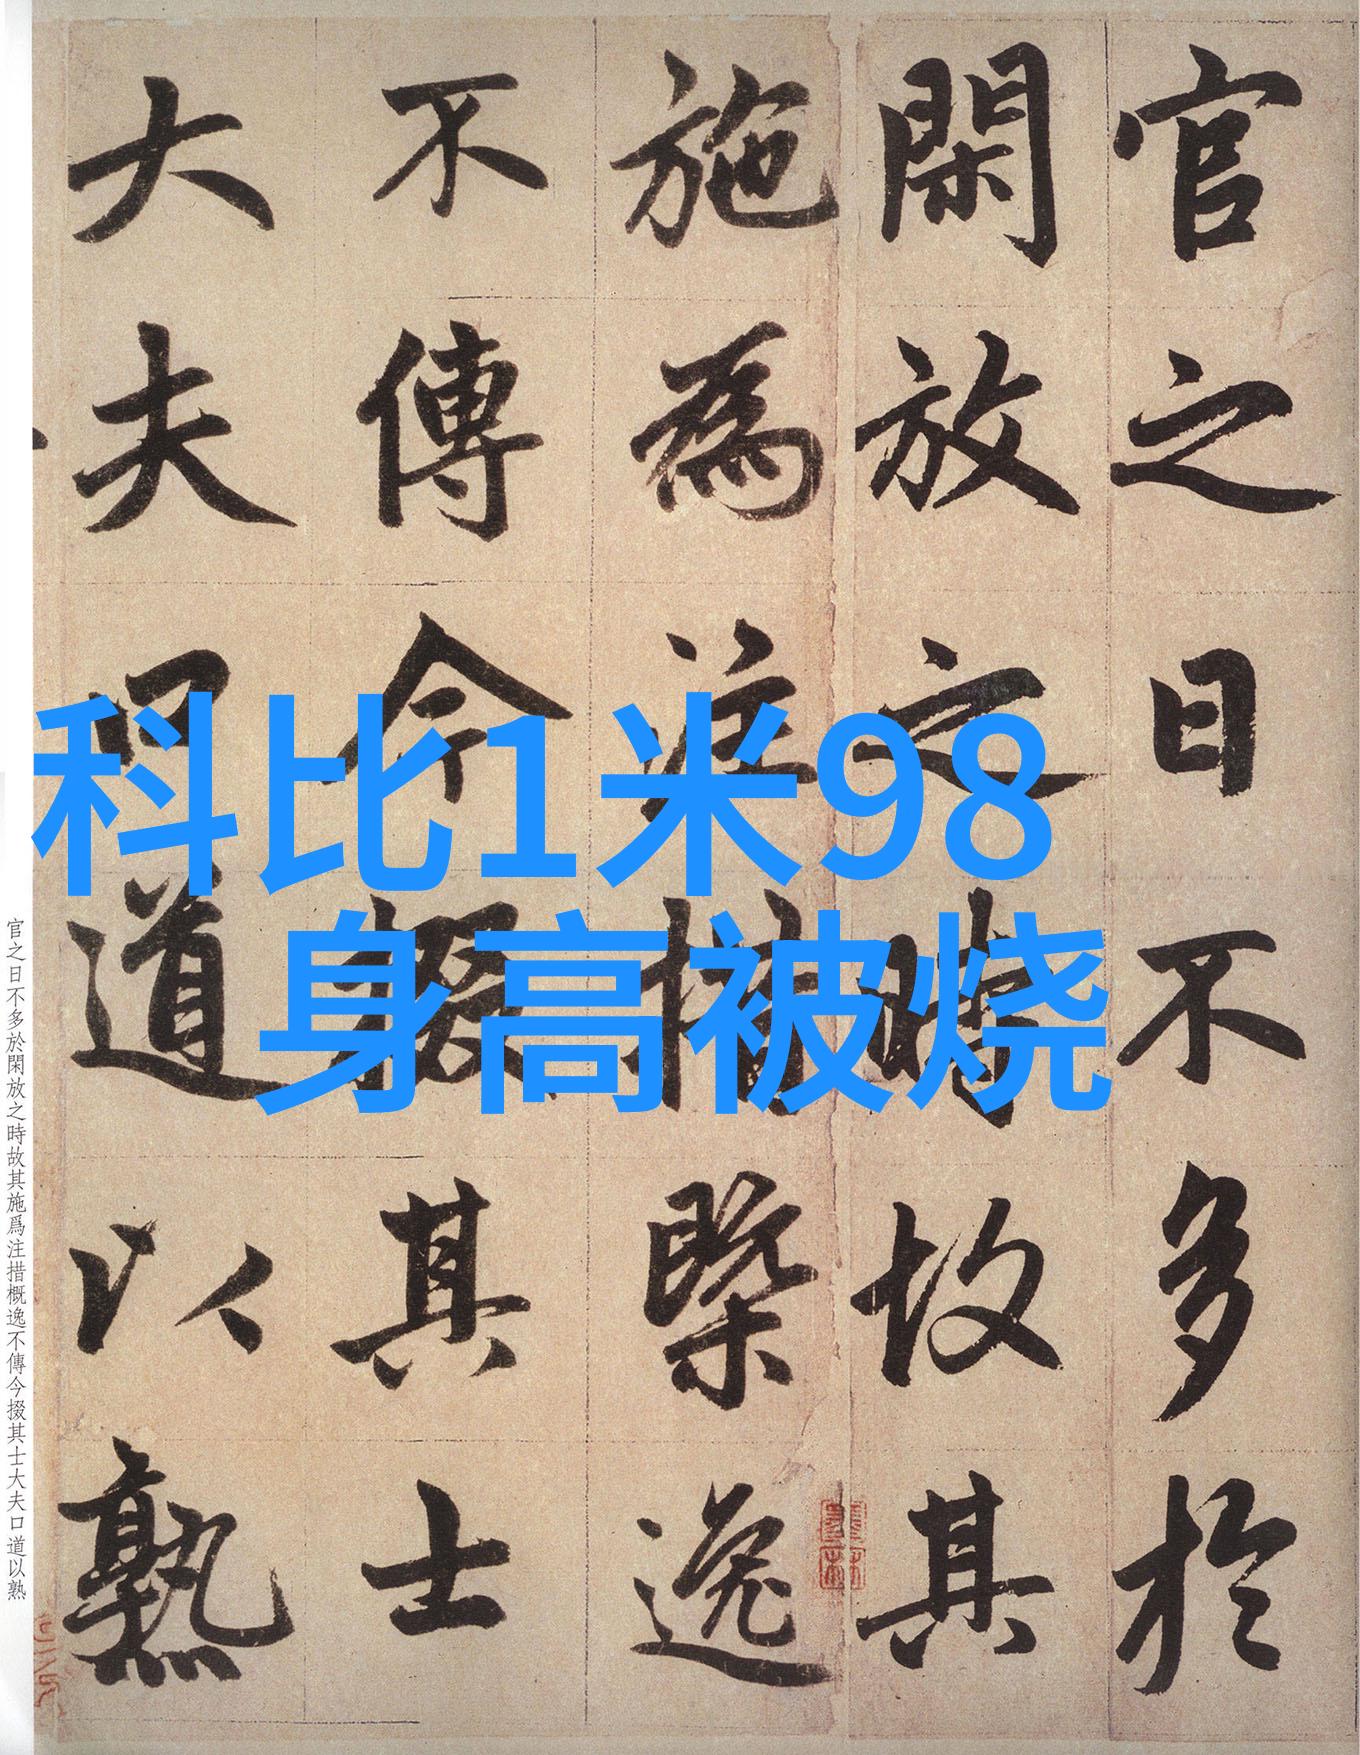 官之日不多於
閑放之時故其
施為注措槩逸
不傳今掇其士
大夫口道以熟
科比1米98
身高被烧
官之日不多於閑放之時故其施爲注措概逸不傳今掇其士大夫口道以熟